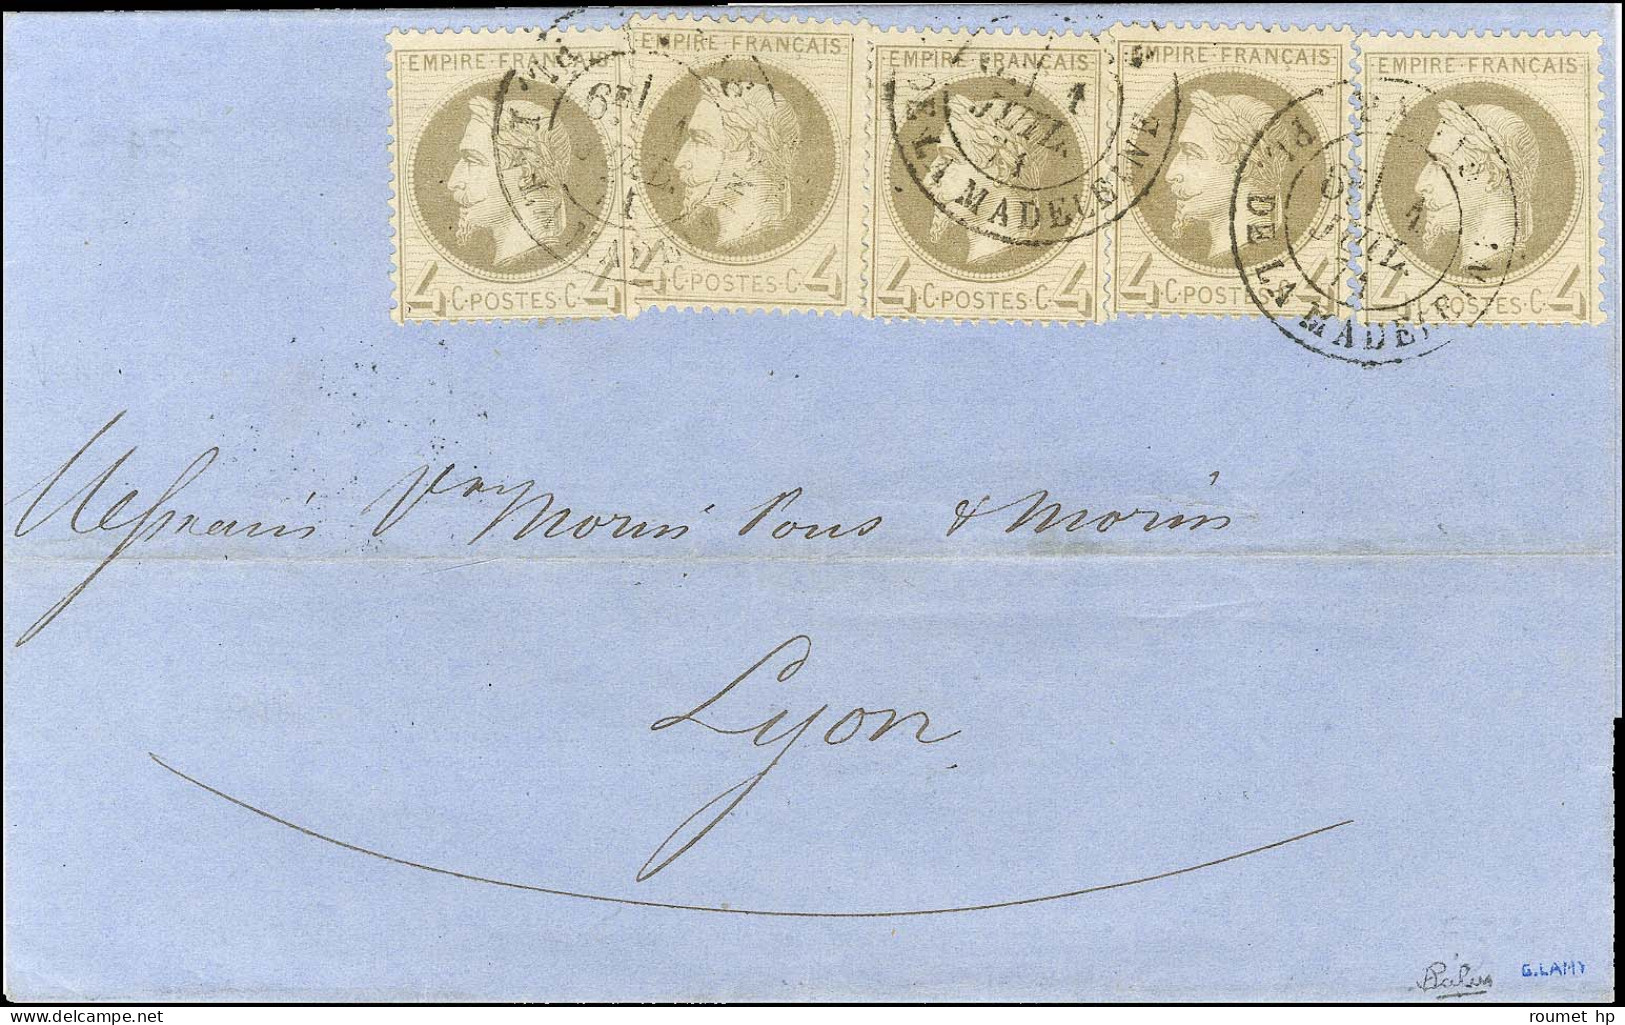 EMPIRE·FRANÇAIS
4 C·POSTES·C· 4
EMPIRE·FRANÇAIS
4 C·POSTES·C· 4
EMPIRE·FRANÇAIS
4 C·POSTES·C· 4
EMPIRE·FRANÇAIS
4 C·POSTES·C· 4
EMPIRE·FRANÇAIS
4 C·POSTES·C· 4
6E
1
JUIL.
71
DE LA MADELEINE
PARIS
PL. DE LA MADELEINE
6E 1
JUIL.
71
Messieurs Vve Morin Pons & Morin
Lyon
G.LAMY
roumet hp
delcampe.net